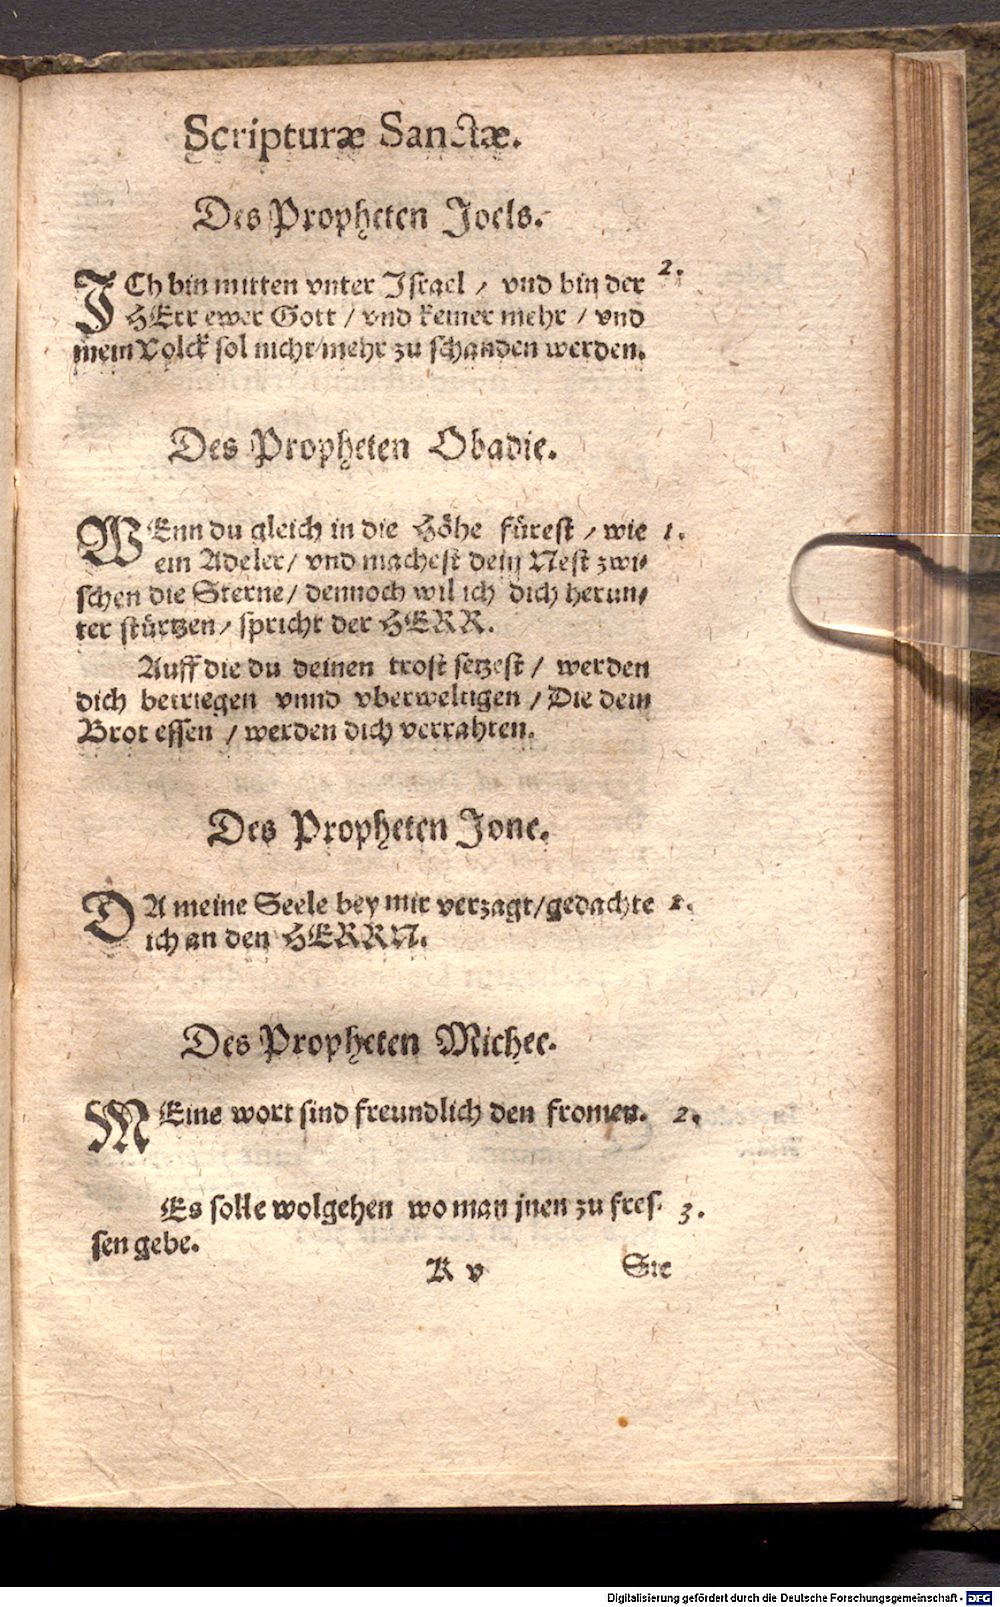 Scripturæ Sanctæ.
Des Propheten Joels.
ICh bin mitten vnter Israel / vnd bin der 2.
HErr ewer Gott / vnd keiner mehr / vnd
mein Volck sol nicht mehr zu schanden werden.
Des Propheten Obadie.
WEnn du gleich in die Höhe fürest / wie 1.
ein Adeler / vnd machest dein Nest zwi-
schen die Sterne / dennoch wil ich dich herun-
ter stürtzen / spricht der HERR.
Auff die du deinen trost setzest / werden
dich betriegen vnnd vberweltigen / Die dein
Brot essen / werden dich verrahten.
Des Propheten Jone.
DA meine Seele bey mir verzagt / gedachte 2.
ich an den HERRN.
Des Propheten Michee.
MEine wort sind freundlich den fromen. 2.
Es solle wolgehen wo man jnen zu fres- 3.
sen gebe.
K v Sie
Digitalisierung gefördert durch die Deutsche Forschungsgemeinschaft - DFG